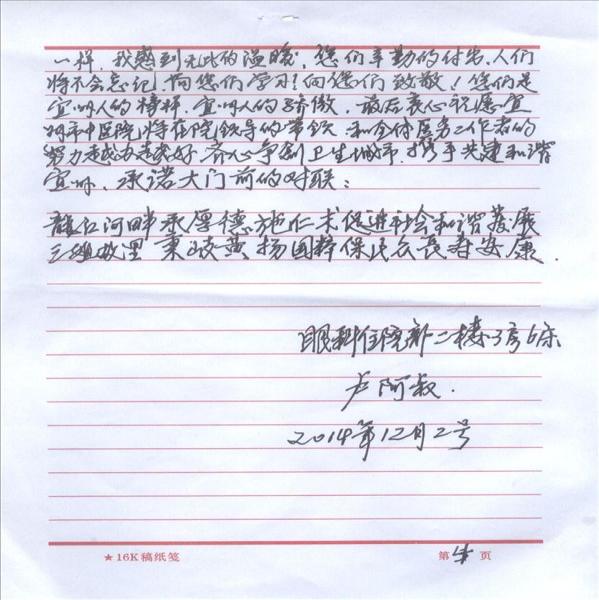 一样,我感到无比的温暖,您们辛勤的付出,人们
将不会忘记,向您们学习!向您们致敬!您们是
宜州人的榜样,宜州人的骄傲,最后衷心祝愿宜
州市中医院,将在院领导的带领,和全体医务工作者的
努力越办越好,齐心争创卫生城市,携手共建和谐
宜州,承诺大门前的对联:
龙江河畔承厚德施仁术促进社会和谐发展
三姐故里秉岐黄扬国粹保民众长寿安康.
眼科住院部二楼3房6床
卢阿叔.
2014年12月2号
★16K稿纸笺
第4页